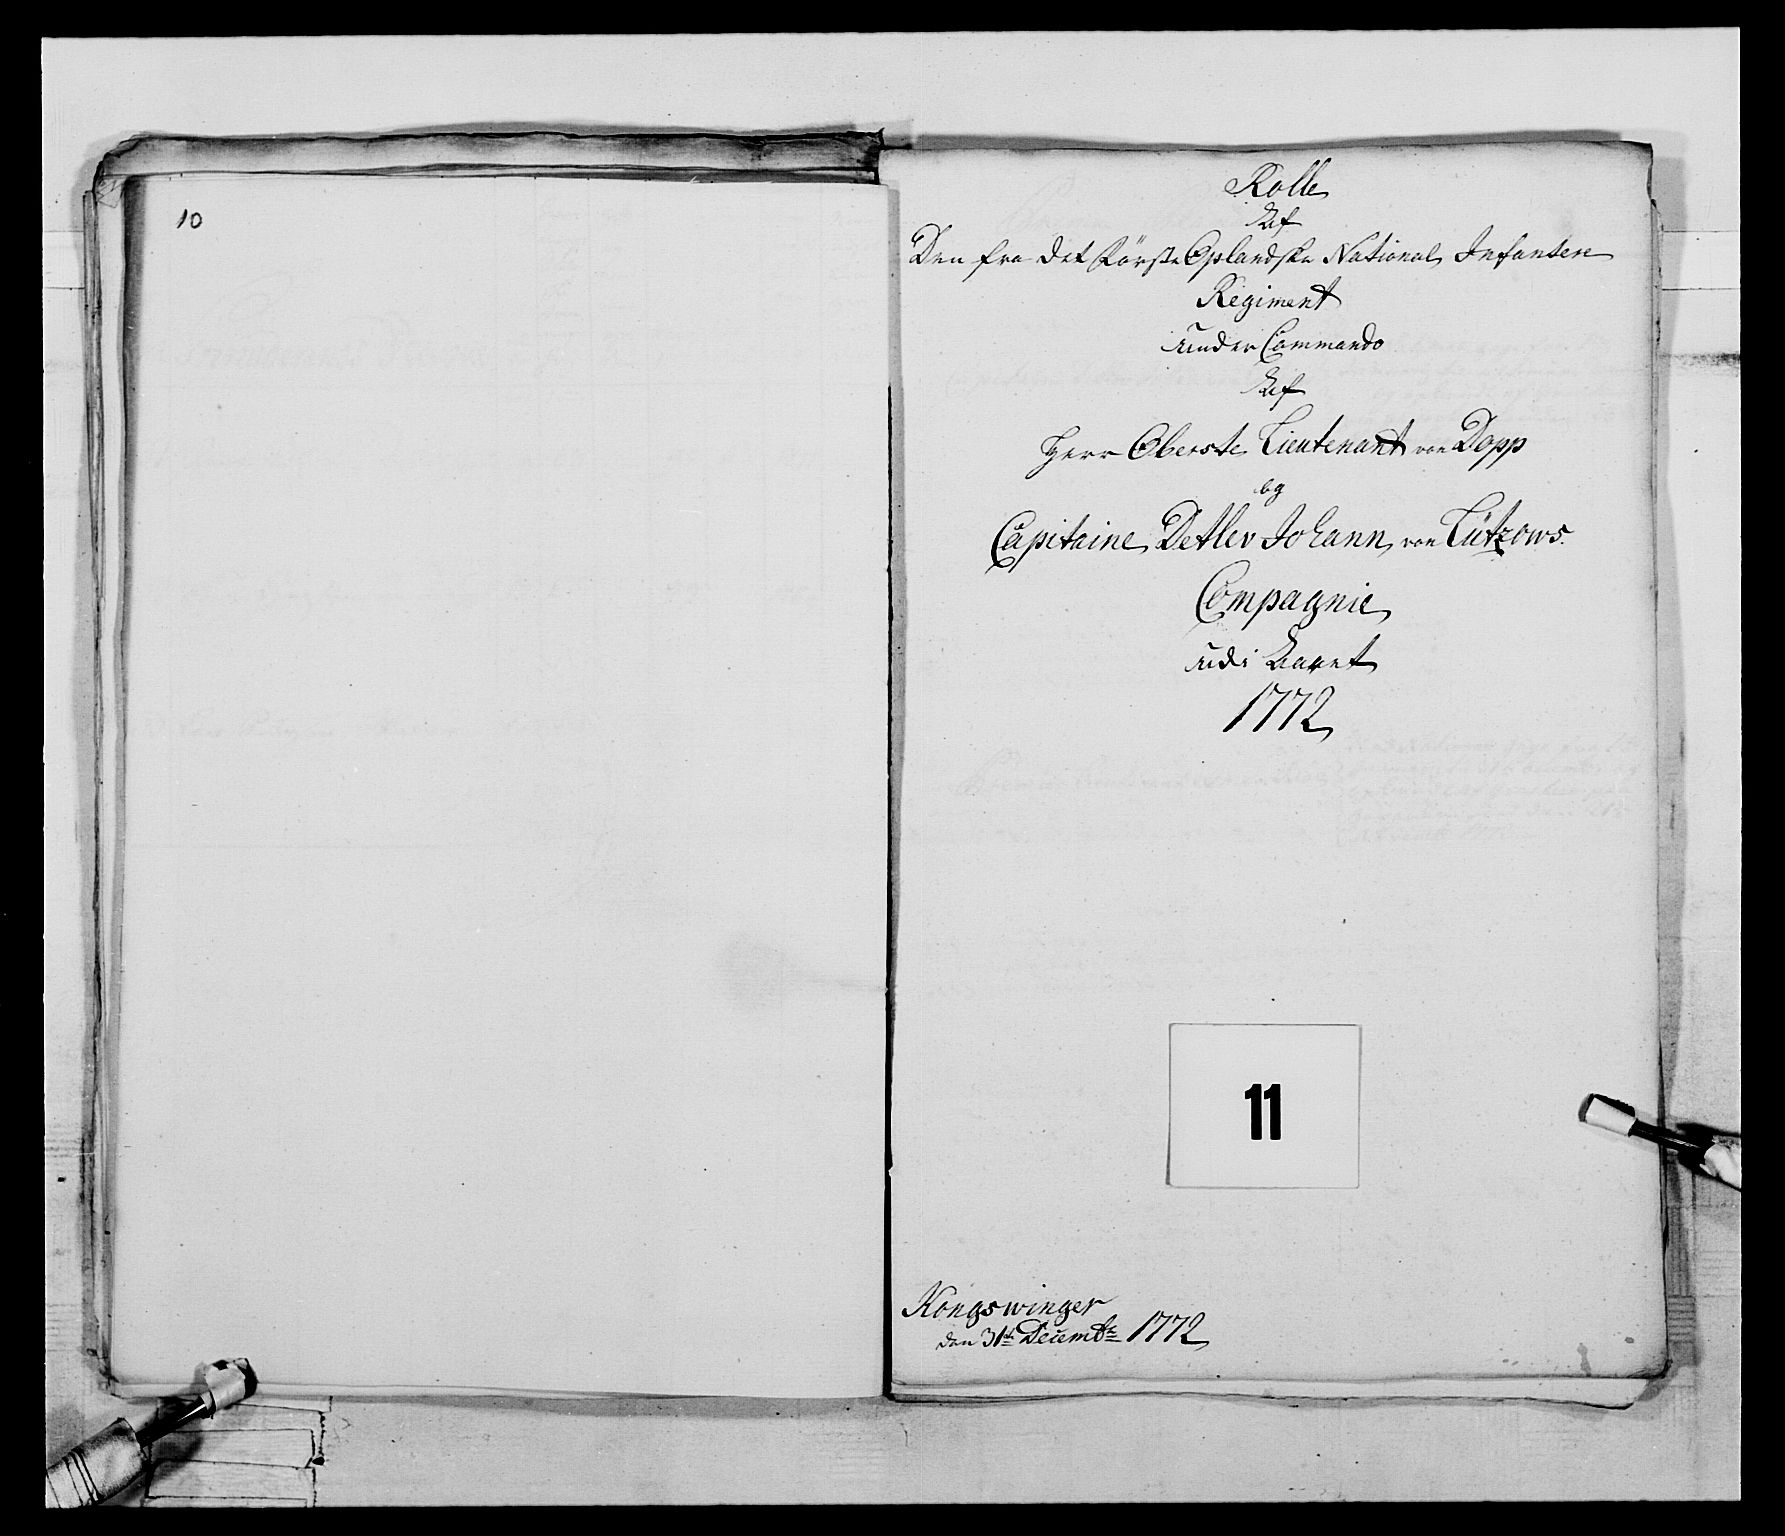 10
Rolle
Af
Den fra det Förste Oplandske National Infanterie
Regiment
under Commando
Af
Herr Oberste Lieutenant von Dopp
og
Capitaine Detlev Johann von Lützows
Compagnie
udi Aaret
1772
11
Kongswinger
den 31te Decembr 1772